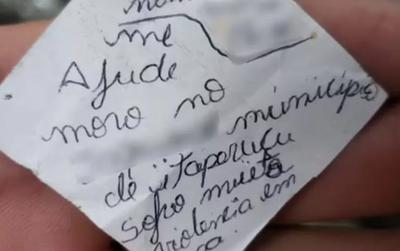 me
Ajude
moro no
município
de itaparucu
sofro muito
violencia em